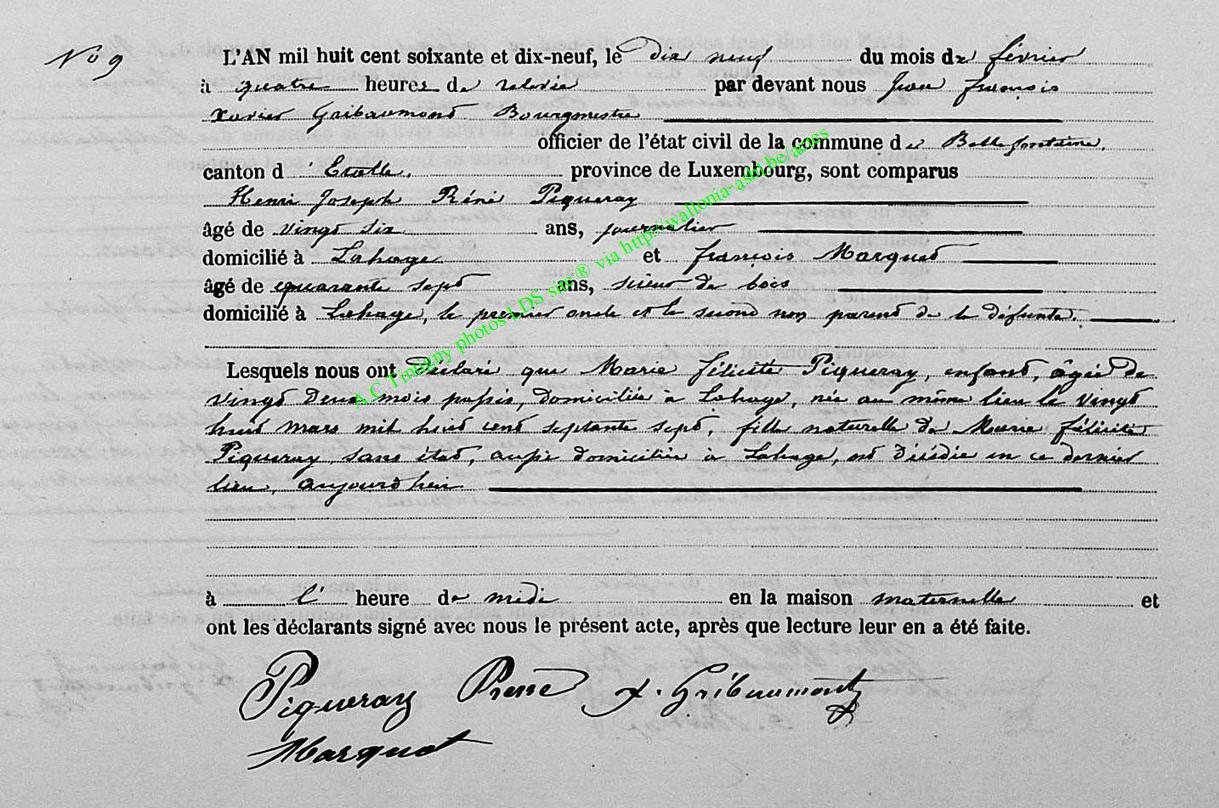 No 9
L'AN mil huit cent soixante et dix-neuf, le dix neuf du mois de février
à quatre heures de relevée par devant nous Jean françois
Xavier Gribaumont Bourgmestre
officier de l'état civil de la commune de Bellefontaine,
canton d Etalle, province de Luxembourg, sont comparus
Henri Joseph Réné Piqueray
âgé de vingt six ans, journalier
domicilié à Lahage et françois Marquet
âgé de quarante sept ans, scieur de bois
domicilié à Lahage, le premier oncle et le second non parent de la défunte.
Lesquels nous ont déclaré que Marie félicité Piqueray, enfant, âgée de
vingt deux mois passés, domiciliée à Lahage, née au même lieu le vingt
huit mars mil huit cent septante sept, fille naturelle de Marie félicité
Piqueray, sans état, aussi domiciliée à Lahage, est décédée en ce dernier
lieu, aujourd'hui
à l' heure de midi en la maison maternelle et
ont les déclarants signé avec nous le présent acte, après que lecture leur en a été faite.
Piqueray X. Gribaumont
Marquet
A.C Tintigny photos LDS snc® via http://wallonia-asbl.be/actes